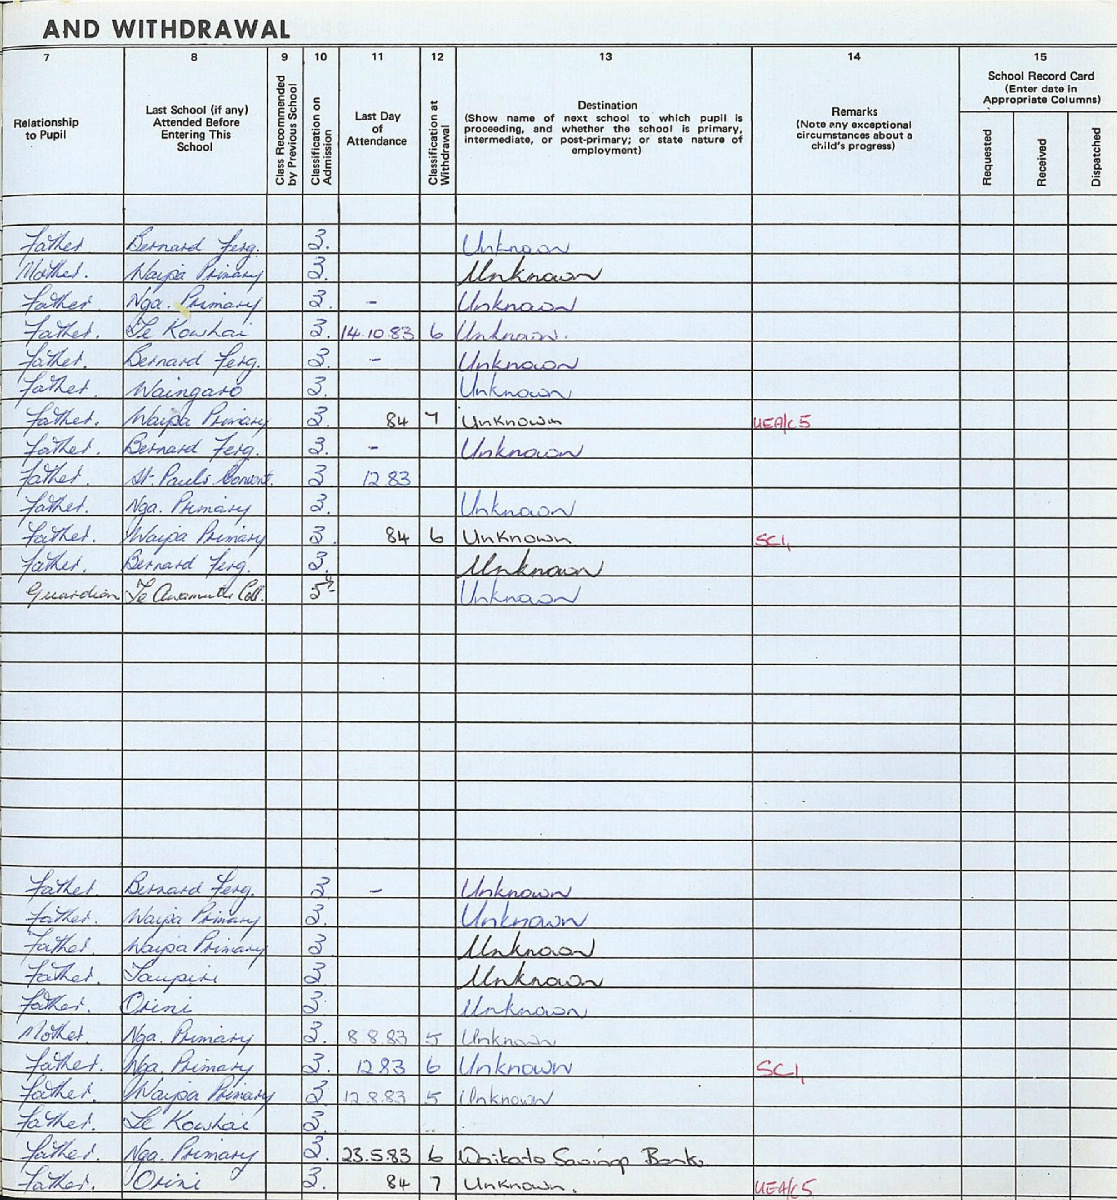 AND WITHDRAWAL
7 8 9 10 11 12 13 14 15
Relationship to Pupil
Last School (if any) Attended Before Entering This School
Class Recommended by Previous School
Classification on Admission
Last Day of Attendance
Classification at Withdrawal
Destination
(Show name of next school to which pupil is proceeding, and whether the school is primary, intermediate, or post-primary; or state nature of employment)
Remarks
(Note any exceptional circumstances about a child's progress)
School Record Card
(Enter date in Appropriate Columns)
Requested
Received
Dispatched
Father Bernard Ferg. 3. Unknown
Mother. Waipa Primary 3. Unknown
Father. Nga. Primary 3. - Unknown
Father. Te Kowhai 3. 14.10.83 6 Unknown.
Father. Bernard Ferg. 3. - Unknown
Father Waingaro 3. Unknown
Father. Waipa Primary 3. 84 7 Unknown UEA/c5
Father. Bernard Ferg. 3. - Unknown
Father. St. Pauls Convent. 3 12 83
Father. Nga. Primary 3. Unknown
Father. Waipa Primary 3. 84 6 Unknown SC1,
Father. Bernard Ferg. 3. Unknown
Guardian Te Awamutu Coll. 5 Unknown
Father. Bernard Ferg. 3 - Unknown
Father. Waipa Primary 3. Unknown
Father. Waipa Primary 3. Unknown
Father. Taupiri 3. Unknown
Father. Orini 3. Unknown
Mother. Nga. Primary 3. 8 8.83 5 Unknown
Father. Nga. Primary 3. 12 83 6 Unknown SC1,
Father. Waipa Primary 3. 12.8.83 5 Unknown
Father. Te Kowhai 3.
Father. Nga. Primary 3. 23.5.83 6 Waikato Savings Bank.
Father. Orini 3. 84 7 Unknown. UEA/c5